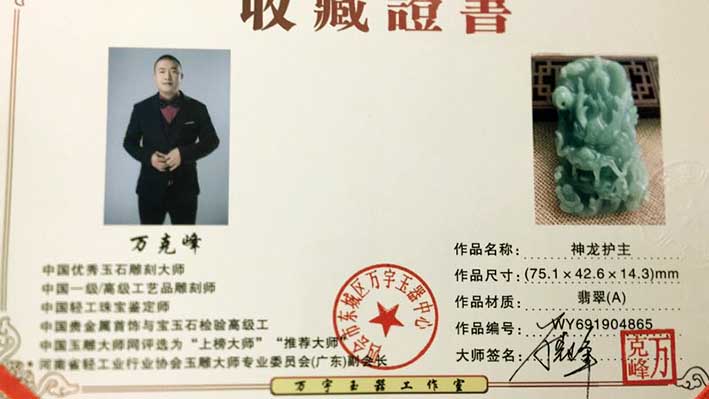 收藏證書
万克峰
中国优秀玉石雕刻大师
中国一级/高级工艺品雕刻师
中国轻工珠宝鉴定师
中国贵金属首饰与宝玉石检验高级工
中国玉雕大师网评选为“上榜大师”“推荐大师”
河南省轻工业行业协会玉雕大师专业委员会(广东)副会长
作品名称: 神龙护主
作品尺寸: (75.1×42.6×14.3)mm
作品材质: 翡翠(A)
作品编号: WY691904865
大师签名:
万克峰
市东城区万宇玉器中心
万宇玉器工作室